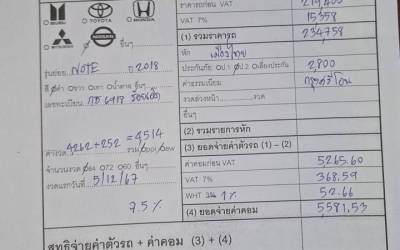 ราคารถก่อน VAT 219,400
ISUZU TOYOTA HONDA
VAT 7% 15358
MITSUBISHI NISSAN อื่นๆ
(1) รวมราคารถ 234758
หัก เมืองไทย
รุ่นย่อย NOTE ปี 2018
ประกันภัย ป.1 ป.2 เลี่ยงประกัน 2,800
สี ดำ ขาว เทา น้ำตาล อื่นๆ
ค่าธรรมเนียม
เลขทะเบียน 6418 ร้อยเอ็ด
งวดล่วงหน้า งวด
อื่นๆ
(2) รวมรายการหัก
ค่างวด 4262+252 = 4514
(3) ยอดจ่ายค่าตัวรถ (1) - (2)
จำนวนงวด 84 72 60 อื่นๆ
ค่าคอมก่อน VAT 5,265.60
งวดแรกวันที่ 5/12/67
VAT 7% 368.59
WHT 3% 1% 52.66
7.5%
(4) ยอดจ่ายค่าคอม 5581.53
สุทธิจ่ายค่าตัวรถ + ค่าคอม (3) + (4)